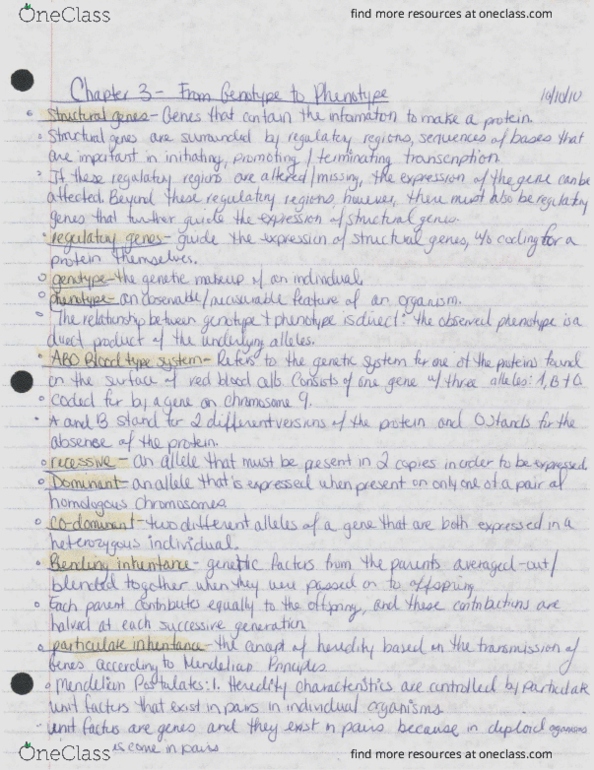 OneClass
find more resources at oneclass.com
Chapter 3 - From Genotype to Phenotype
10/10/10
structural genes - Genes that contain the information to make a protein.
Structural genes are surrounded by regulatory regions, sequences of bases that
are important in initiating, promoting / terminating transcription
If these regulatory regions are altered/missing, the expression of the gene can be
affected. Beyond these regulatory regions, however, there must also be regulatory
genes that further guide the expression of structural genes.
regulatory genes - guide the expression of structural genes, w/o coding for a
protein themselves.
genotype - the genetic makeup of an individual.
phenotype - an observable/measurable feature of an organism.
The relationship between genotype + phenotype is direct: the observed phenotype is a
direct product of the underlying alleles.
ABO Blood type system - Refers to the genetic system for one of the proteins found
on the surface of red blood cells. Consists of one gene w/ three alleles: A, B + O.
Coded for by a gene on chromosome 9.
A and B stand for 2 different versions of the protein and O stands for the
absence of the protein.
recessive - an allele that must be present in 2 copies in order to be expressed
Dominant - an allele that is expressed when present on only one of a pair of
homologous chromosomes
co-dominant - two different alleles of a gene that are both expressed in a
heterozygous individual.
Blending inheritance - genetic factors from the parents averaged-out/
blended together when they were passed on to offspring
Each parent contributes equally to the offspring, and these contributions are
halved at each successive generation
particulate inheritance - the concept of heredity based on the transmission of
genes according to Mendelian Principles
Mendelian Postulates: 1. Heredity characteristics are controlled by particulate
unit factors that exist in pairs in individual organisms.
- unit factors are genes and they exist in pairs because in diploid organisms
is come in pairs
OneClass
find more resources at oneclass.com